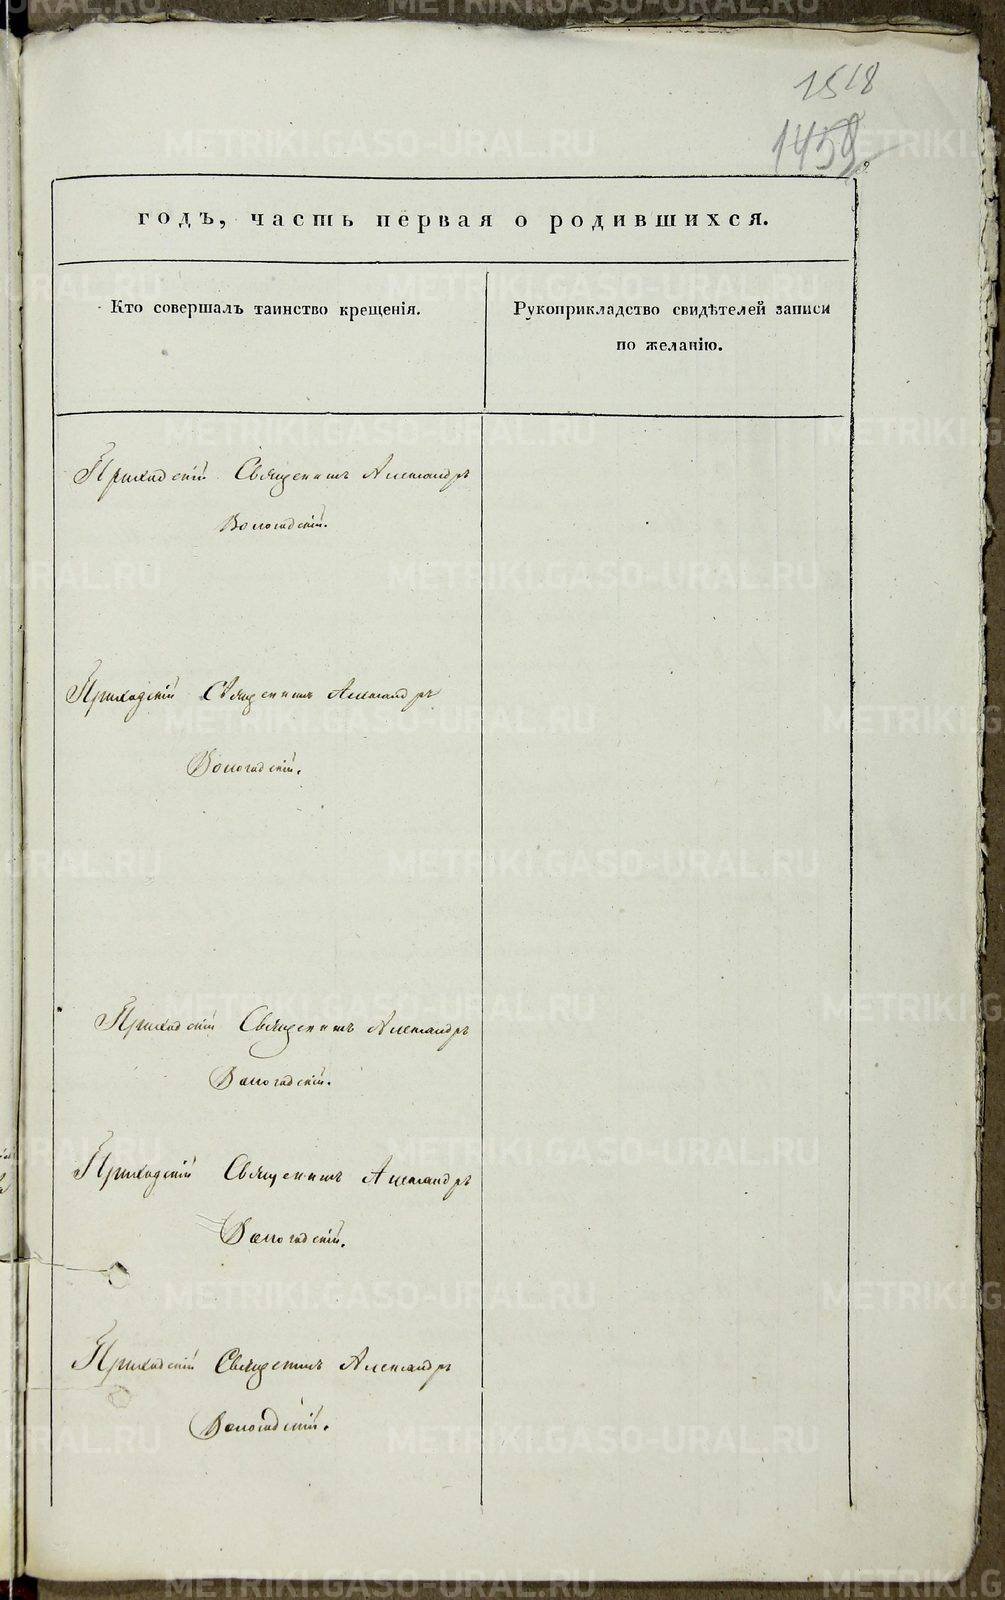 1518
1459
годъ, часть первая о родившихся.
Кто совершалъ таинство крещенія.
Рукоприкладство свидѣтелей записи
по желанію.
Приходскій Священникъ Александръ
Вологодскій.
Приходскій Священникъ Александръ
Вологодскій.
Приходскій Священникъ Александръ
Вологодскій.
Приходскій Священникъ Александръ
Вологодскій.
Приходскій Священникъ Александръ
Вологодскій.
METRIKI.GASO-URAL.RU